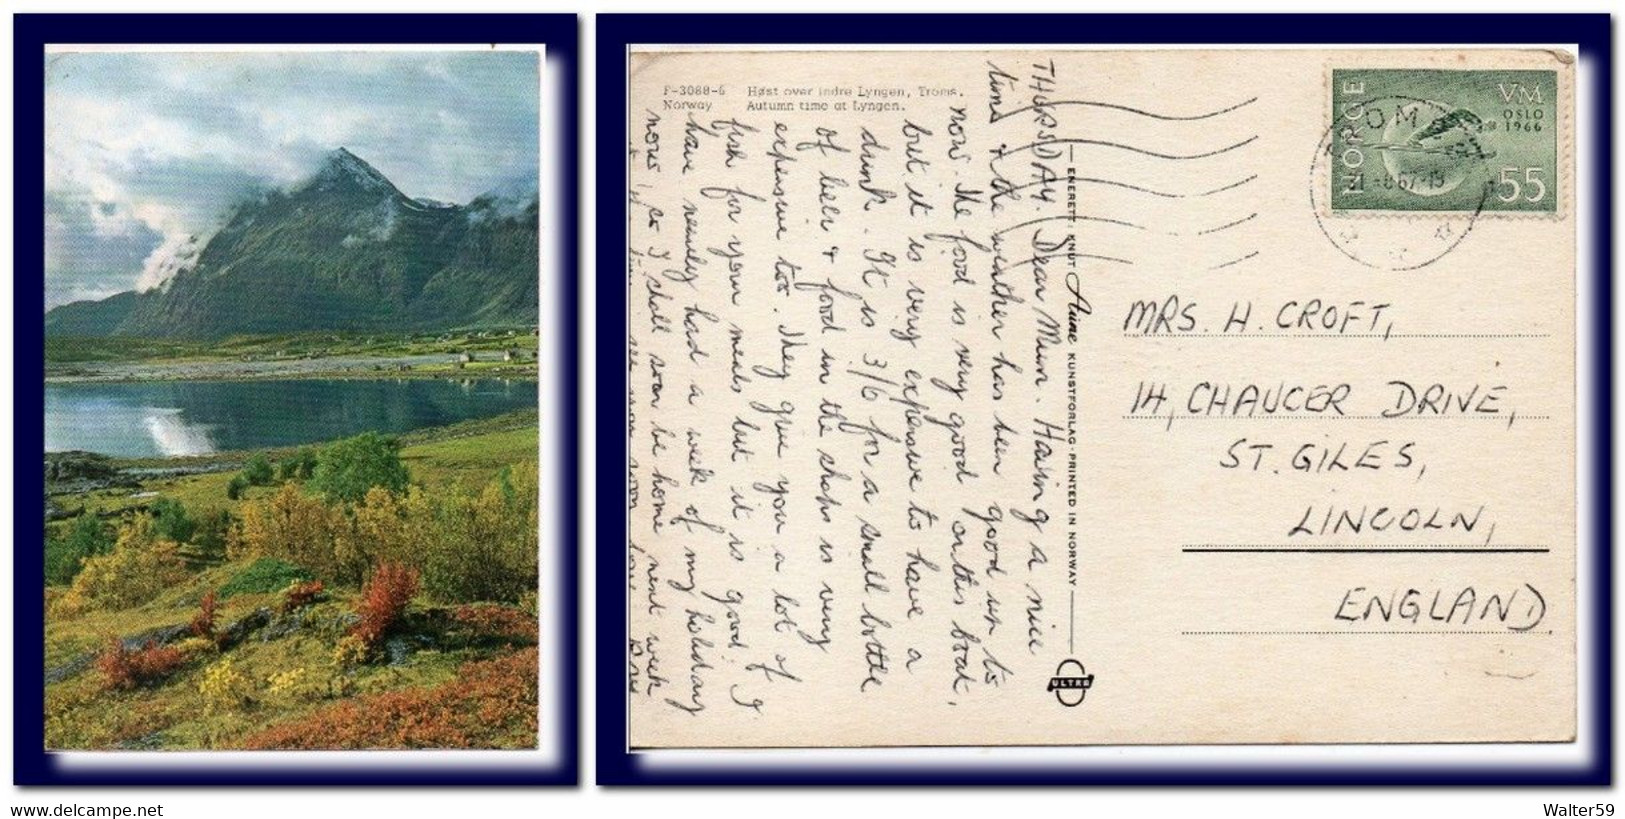 F-3088-6 Høst over indre Lyngen, Troms.
Norway Autumn time at Lyngen.
THURSDAY. Dear Mum. Having a nice
time & the weather has been good up to
now. The food is very good on this boat,
but it is very expensive to have a
drink. It is 3/6 for a small bottle
of beer & food in the shops is very
expensive too. They give you a lot of
fish for your meals but it is good. I
have nearly had a week of my holiday
now, so I shall soon be home next week
ENERETT: KNUT Aune KUNSTFORLAG - PRINTED IN NORWAY
ULTRA
NORGE
VM
OSLO
1966
55
MRS. H. CROFT,
14, CHAUCER DRIVE,
ST. GILES,
LINCOLN,
ENGLAND
https://www.delcampe.net
Walter59